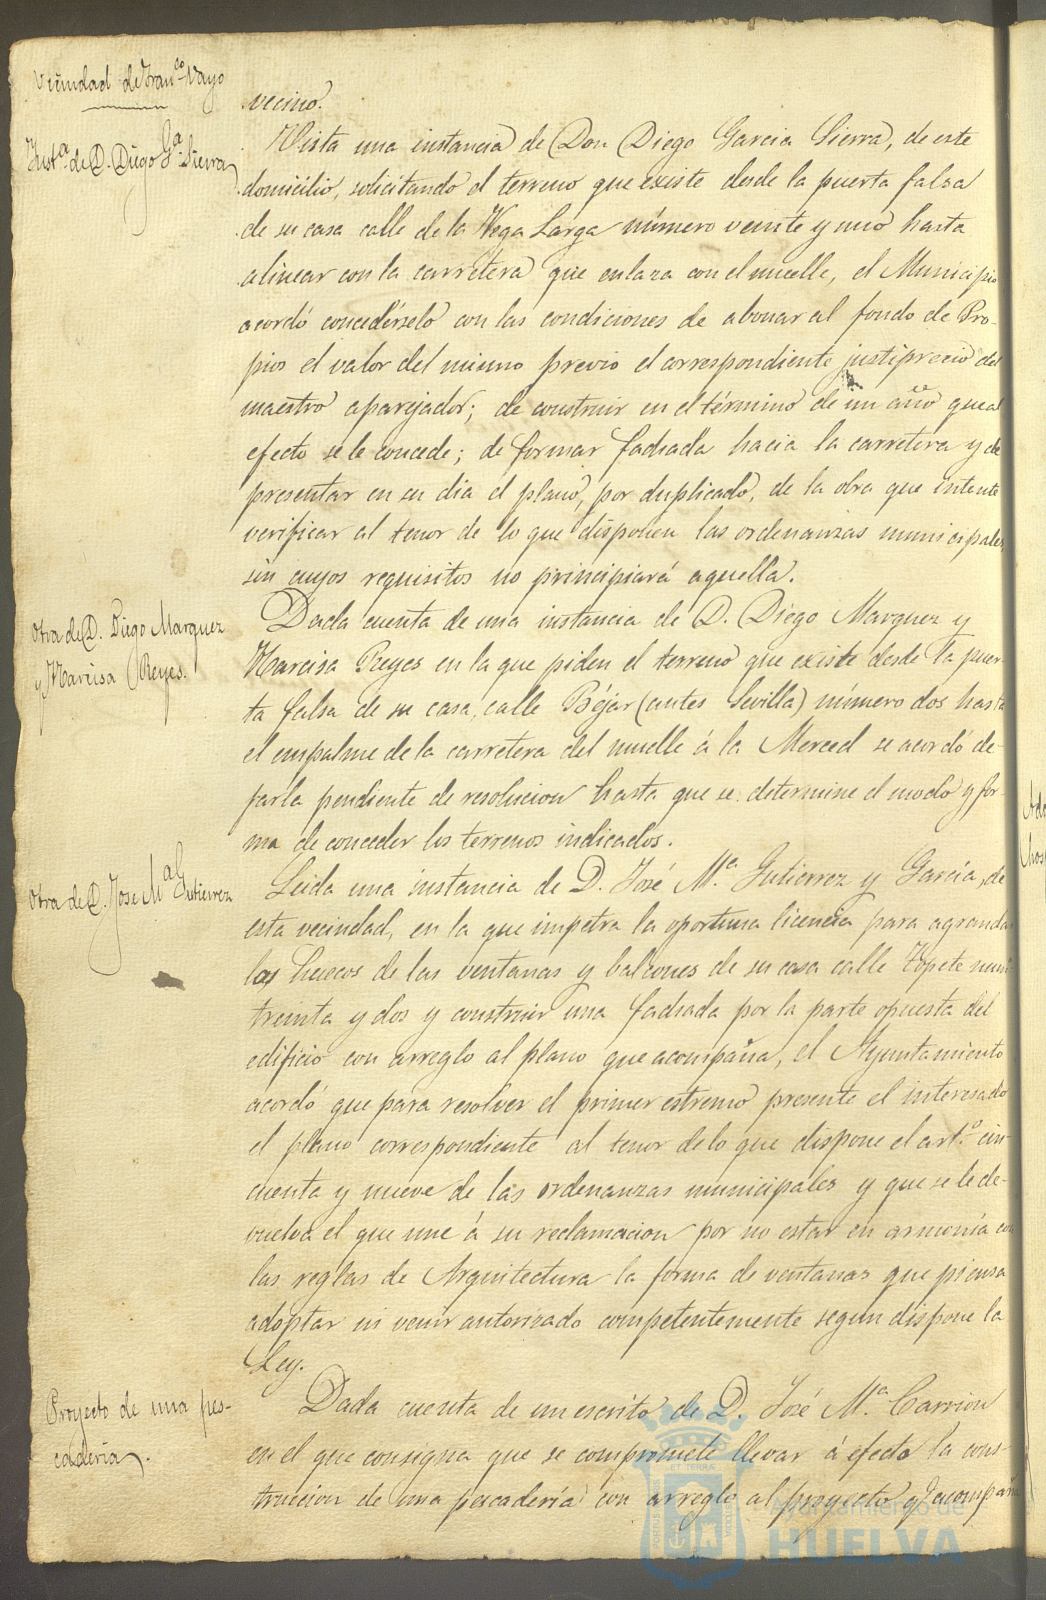 Vecindad de Fran.co Vayo
vecino.
Inst.a de D. Diego G.a Sierra
Vista una instancia de Don Diego Garcia Sierra, de este
domicilio, solicitando el terreno que existe desde la puerta falsa
de su casa calle de la Vega Larga número veinte y uno hasta
alinear con la carretera que enlaza con el muelle, el Municipio
acordó concedérselo con las condiciones de abonar al fondo de Pro-
pios el valor del mismo previo el correspondiente justiprecio del
maestro aparejador; de construir en el término de un año que al
efecto se le concede; de formar fachada hacia la carretera y de
presentar en su dia el plano, por duplicado, de la obra que intente
verificar al tenor de lo que disponen las ordenanzas municipales,
sin cuyos requisitos no principiará aquella.
Otra de D. Diego Marquez
y Narcisa Reyes.
Dada cuenta de una instancia de D. Diego Marquez y
Narcisa Reyes en la que piden el terreno que existe desde la puer-
ta falsa de su casa, calle Béjar (antes Sevilla) número dos hasta
el empalme de la carretera del muelle á la Merced se acordó de-
jarla pendiente de resolucion hasta que se determine el modo y for
ma de conceder los terrenos indicados.
Otra de D. Jose M.a Gutierrez
Leida una instancia de D. José M.a Gutierrez y García, de
esta vecindad, en la que impetra la oportuna licencia para agrandar
los huecos de las ventanas y balcones de su casa calle Topete num.
treinta y dos y construir una fachada por la parte opuesta del
edificio con arreglo al plano que acompaña, el Ayuntamiento
acordó que para resolver el primer estremo presente el interesado
el plano correspondiente al tenor de lo que dispone el art.o cin-
cuenta y nueve de las ordenanzas municipales y que se le de-
vuelva el que une á su reclamacion por no estar en armonía con
las reglas de Arquitectura la forma de ventanas que piensa
adoptar ni venir autorizado competentemente segun dispone la
Ley.
Proyecto de una pes-
cadería.
Dada cuenta de un escrito de D. José M.a Carrion
en el que consigna que se compromete llevar á efecto la cons-
truccion de una pescadería con arreglo al proyecto q.e acompaña
Ayuntamiento de
HUELVA